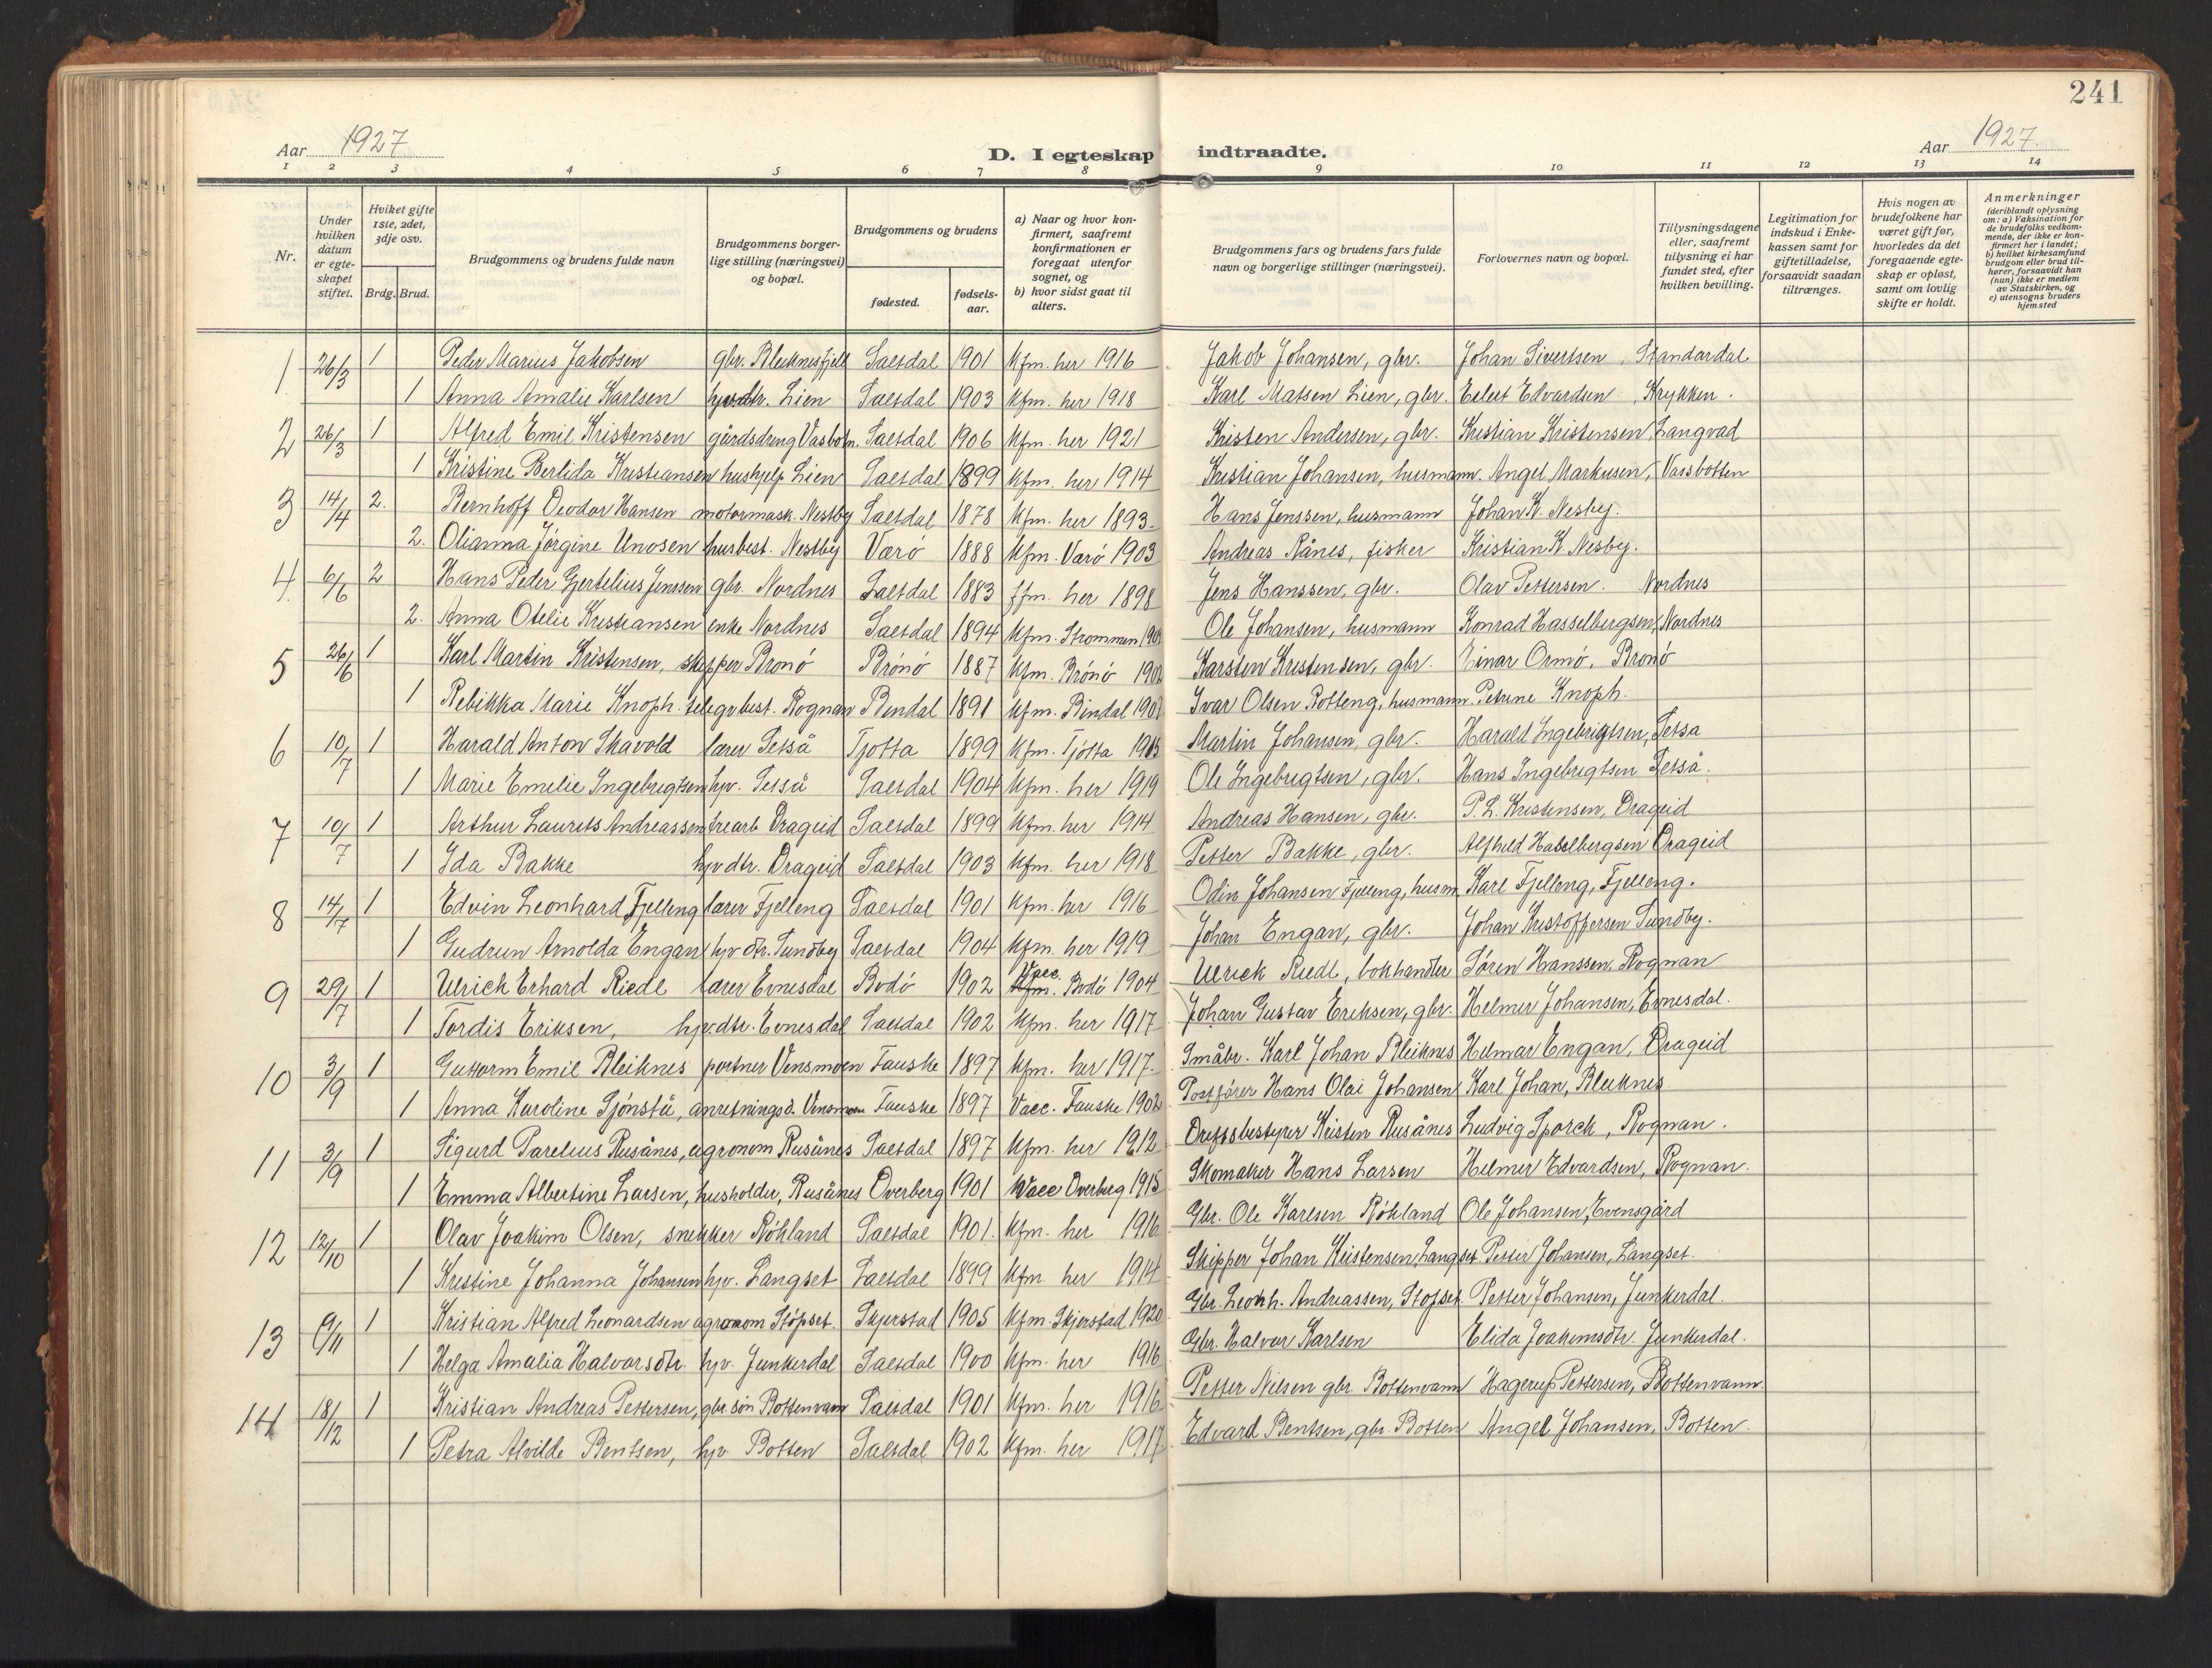 241
Aar 1927
D. I egteskap indtraadte.
Aar 1927.
1 2 3 4 5 6 7 8 9 10 11 12 13 14
Nr.
Under hvilken datum er egteskapet stiftet.
Hviket gifte 1ste, 2det, 3dje osv.
Brdg. Brud.
Brudgommens og brudens fulde navn
Brudgommens borgerlige stilling (næringsvei) og bopæl.
Brudgommens og brudens
fødested. fødselsaar.
a) Naar og hvor konfirmert, saafremt konfirmationen er foregaat utenfor sognet, og
b) hvor sidst gaat til alters.
Brudgommens fars og brudens fars fulde navn og borgerlige stillinger (næringsvei).
Forlovernes navn og bopæl.
Tillysningsdagene eller, saafremt tillysning ei har fundet sted, efter hvilken bevilling.
Legitimation for indskud i Enkekassen samt for giftetilladelse, forsaavidt saadan tiltrænges.
Hvis nogen av brudefolkene har været gift før, hvorledes da det foregaaende egteskap er opløst, samt om lovlig skifte er holdt.
Anmerkninger (deriblandt oplysning om: a) Vaksination for de brudefolks vedkommende, der ikke er konfirmert her i landet; b) hvilket kirkesamfund brudgom eller brud tilhører, forsaavidt han (hun) ikke er medlem av Statskirken, og c) utensogns bruders hjemsted
1 26/3 1 Peder Marius Jakobsen gbr. Bleiknesfjell Saltdal 1901 Kfm. her 1916 Jakob Johansen, gbr. Johan Sivertsen, Standardal
1 Anna Amalie Karlsen Lien Saltdal 1903 Kfm. her 1918 Karl Matsen Lien, gbr. Eilert Edvardsen Krykken.
2 26/3 1 Alfred Emil Kristensen gårdsdreng Vasbotn. Saltdal 1906 Kfm. her 1921 Kristen Andersen, gbr. Kristian Kristensen Langvad
1 Kristine Berlida Kristiansen hushjelp Lien Saltdal 1899 Kfm. her 1914 Kristian Johansen, husmann. Angel Markusen, Vassbotten
3 14/4 2. Bernhoff Deodor Hansen motormask. Nestby Saltdal 1878 Kfm. her 1893. Hans Jenssen, husmann Johan K. Nesby.
2. Olianna Jørgine Unosen husbest. Nestby Værö 1888 Kfm. Værö 1903 Andreas Rånes, fisker Kristian K. Nesby.
4. 6/6 2 Hans Peder Gertelius Jenssen gbr. Nordnes Saltdal 1883 kfm. her 1898 Jens Hanssen, gbr. Olav Pettersen. Nordnes
2. Anna Otelie Kristiansen enke Nordnes Saltdal 1894 Kfm. Strommen Ole Johansen, husmann Konrad Hasselbergsen, Nordnes
5 26/6 1 Karl Martin Kristensen, skipper Brönö Brönö 1887 Kfm. Brönö 1902 Karsten Kristensen, gbr. Einar Ormö, Brönö
1 Rebikka Marie Knoph. telegrbest. Rognan Bindal 1891 Kfm. Bindal Ivar Olsen Rotteng, husmann. Petrine Knoph.
6 10/7 1 Harald Anton Skavold lærer Setså Tjotta 1899 Kfm. Tjotta Martin Johansen, gbr. Harald Ingebrigtsen, Setsa
1 Marie Emelie Ingebrigtsen hjv. Setså Saltdal 1904 Kfm. her 1919 Ole Ingebrigtsen, gbr. Hans Ingebrigtsen Setså.
7 10/7 1 Arthur Laurits Andreassen Drageid Saltdal 1899 Kfm. her 1914 Andreas Hansen, gbr. P. L. Kristensen, Drageid
1 Ida Bakke hjv dtr. Drageid Saltdal 1903 Kfm. her 1918 Petter Bakke, gbr. Alfhild Haselbergsen Drageid
8 14/7 1 Edvin Leonhard Fjelleng lærer Fjelleng Saltdal 1901 Kfm. her 1916 Odin Johansen Fjelleng, husm. Karl Fjelleng, Fjelleng.
1 Gudrun Arnolda Engan hjv dtr. Sundby Saltdal 1904 Kfm. her 1919 Johan Engan, gbr. Johan Kristoffersen Sundby.
9 29/7 1 Ulrich Erhard Riedl lærer Evnesdal Bodö 1902 Vacc. Bodö 1904 Ulrick Riedl, bokhandler Sören Hanssen, Rognan
1 Tordis Eriksen, hjv. dtr. Evnesdal Saltdal 1902 Kfm. her 1917 Johan Gustav Eriksen, gbr. Helmer Johansen, Evnesdal.
10 3/9 1 Guttorm Emil Bleiknes portner Vensmoen Fauske 1897 Kfm. her 1917. Småbr. Karl Johan Bleiknes Helmar Engan, Drageid
1 Anna Karoline Sjönstå, anretningsd. Vensmoen Fauske 1897 Vacc. Fauske 1902 Postfører Hans Olai Johansen Karl Johan, Bleiknes
11 3/9 1 Sigurd Parelius Rusånes, agronom Rusånes Saltdal 1897 Kfm. her 1912 Driftsbestyrer Kristen Rusånes Ludvig Sporck, Rognan.
1 Emma Albertine Larsen, husholder, Rusånes Overberg 1901 Vacc Overberg 1915 Skomaker Hans Larsen Helmer Edvardsen, Rognan.
12 12/10 1 Olav Joakim Olsen, snekker Røkland Saltdal 1901. Kfm. her 1916 Gbr. Ole Karlsen Røkland Ole Johansen, Evensgård
1 Kristine Johanna Johansen hjv. Langset Saltdal 1899 Kfm. her 1914 Skipper Johan Kristensen, Langset Petter Johansen, Langset.
13 6/11 1 Kristian Alfred Leonardsen agronom Støpset. Skjerstad 1905 Kfm. Skjerstad 1920 Gbr. Leonh. Andreassen, Stopset Petter Johansen, Junkerdal.
1 Helga Amalia Halvorsdtr. hjv. Junkerdal Saltdal 1900 Kfm. her 1916 Gbr. Halvor Karlsen Elida Joakimsdtr. Junkerdal.
14 18/12 1 Kristian Andreas Pettersen, gbr. søn Bottenvann Saltdal 1901 Kfm. her 1916 Petter Nilsen gbr. Bottenvann Hagerup Pettersen, Bottenvann.
1 Petra Alvilde Bentsen, hjv Botten Saltdal 1902 Kfm. her 1917 Edvard Bentsen, gbr. Botten Angel Johansen, Botten.